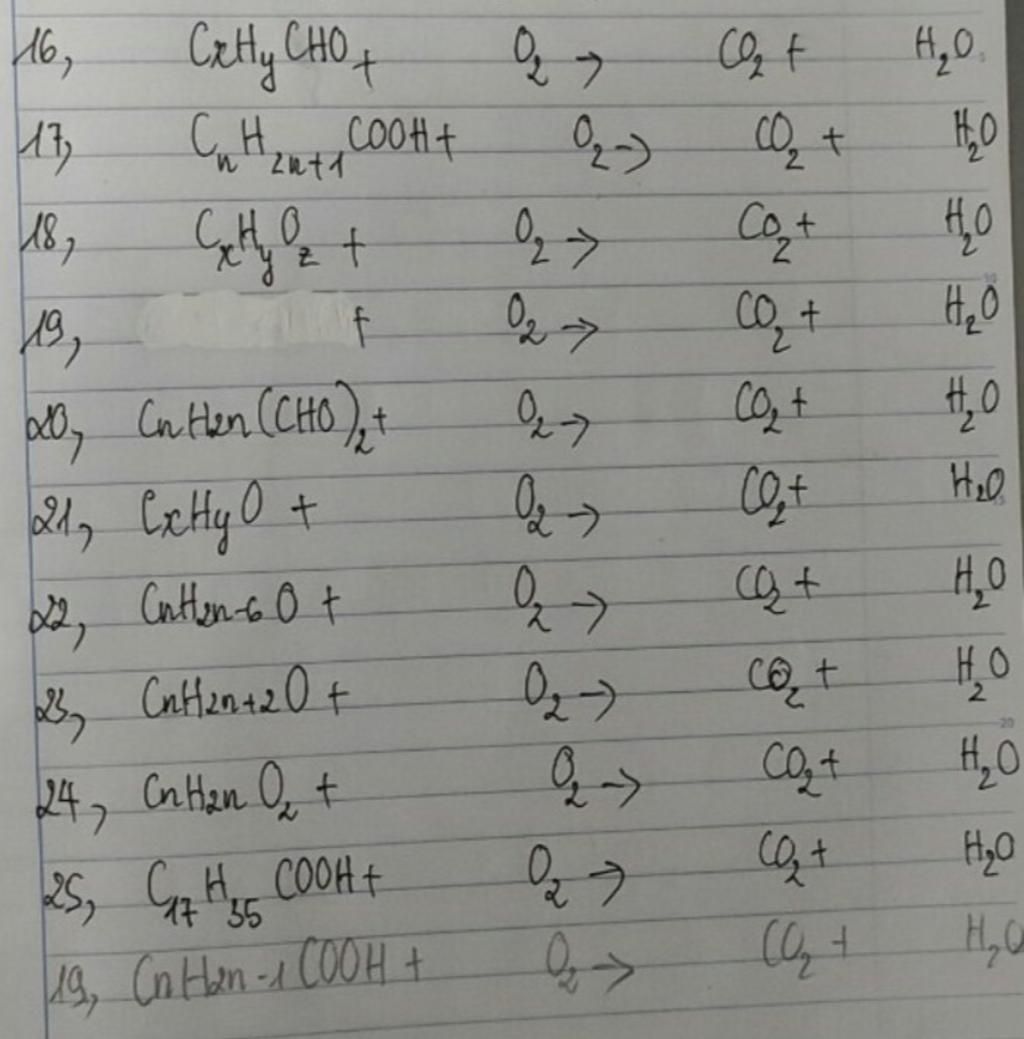 16, CxHyCHO + O2 → CO2 + H2O
17, CnH2n+1COOH + O2 → CO2 + H2O
18, CxHyOz + O2 → CO2 + H2O
19, + O2 → CO2 + H2O
20, CnH2n(CHO)2 + O2 → CO2 + H2O
21, CxHyO + O2 → CO2 + H2O
22, CnH2n-6O + O2 → CO2 + H2O
23, CnH2n+2O + O2 → CO2 + H2O
24, CnH2nO2 + O2 → CO2 + H2O
25, C17H35COOH + O2 → CO2 + H2O
19, CnH2n-1COOH + O2 → CO2 + H2O